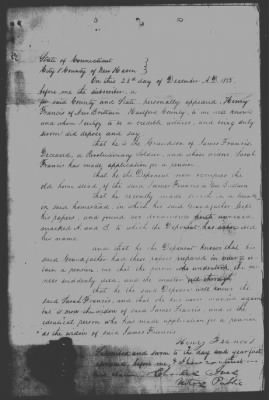 State of Connecticut }
City & County of New Haven }
On this 28th day of December A.D. 1853.
before me the subscriber, a
for said County and State, personally appeared, Henry
Francis of New Britain Hartford County, to me well known
and whom I certify to be a credible witness, and being duly
sworn did depose and say
that he is the Grandson of James Francis,
Deceased, a Revolutionary Soldier, and whose widow Sarah
Francis has made application for a pension
that he the Deponent now occupies the
old home stead of the said James Francis in
that he recently made search in a trunk
in said homestead, in which his said Grandfather kept
his papers, and found two documents
marked A and B. to which he Deponent has
his name
and that he the Deponent knows that his
said Grandfather had these papers
tain a pension, and that the person
ness suddenly died, and the matter
that he the said Deponent well knows the
said Sarah Francis, and that she has never married again
but is now the widow of said James Francis, and is the
identical person who has made application for a pension
as the widow of said James Francis
Henry Francis
Subscribed and sworn to the day and year first
before me, & I have no interest in
Charles
Notary Public